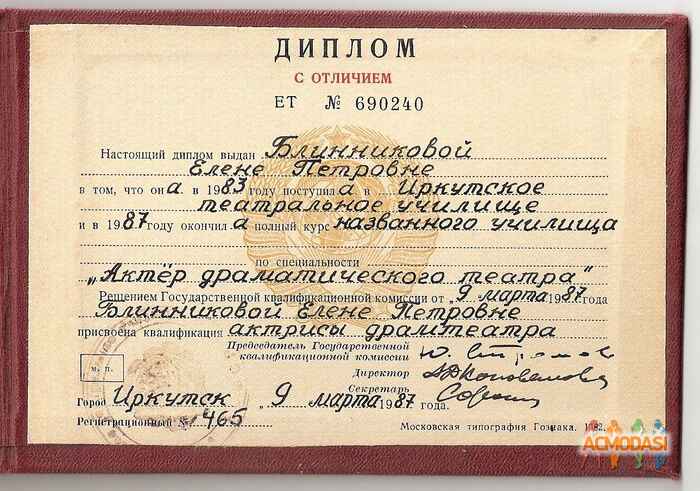 ДИПЛОМ
С ОТЛИЧИЕМ
ЕТ № 690240
Настоящий диплом выдан Блинниковой
Елене Петровне
в том, что она в 1983 году поступила в Иркутское
театральное училище
и в 1987 году окончила полный курс названного училища
по специальности
„Актёр драматического театра"
Решением Государственной квалификационной комиссии от „9 марта 1987 года
Блинниковой Елене Петровне
присвоена квалификация актрисы драмтеатра
Председатель Государственной
квалификационной комиссии
Директор
Секретарь
м. п.
Город Иркутск „9 марта 1987 года.
Регистрационный № 465
Московская типография Гознака. 1982.
ACMODASI